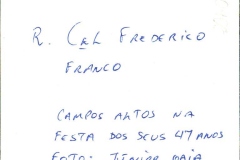 R. CEL FREDERICO
FRANCO
CAMPOS ALTOS NA
FESTA DOS SEUS 47 ANOS
FOTO: MAIA